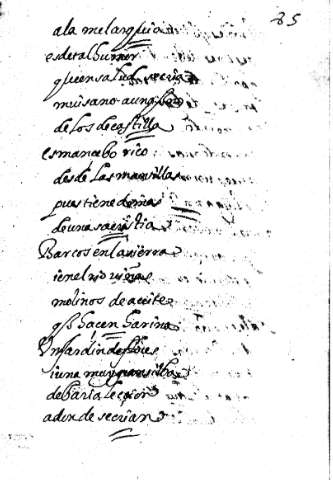 85
a la melarquia
es de tal humor
que en salud se cria
mui sano aunq
de los de castilla
es mancebo rico
desde las mantillas
pues tiene demas
de una sacristia
Barcos en la sierra
i en el rio viñas
molinos de aceite
q hacen harina
Un jardin de flores
i una mui
de baria leccion
adonde se crian